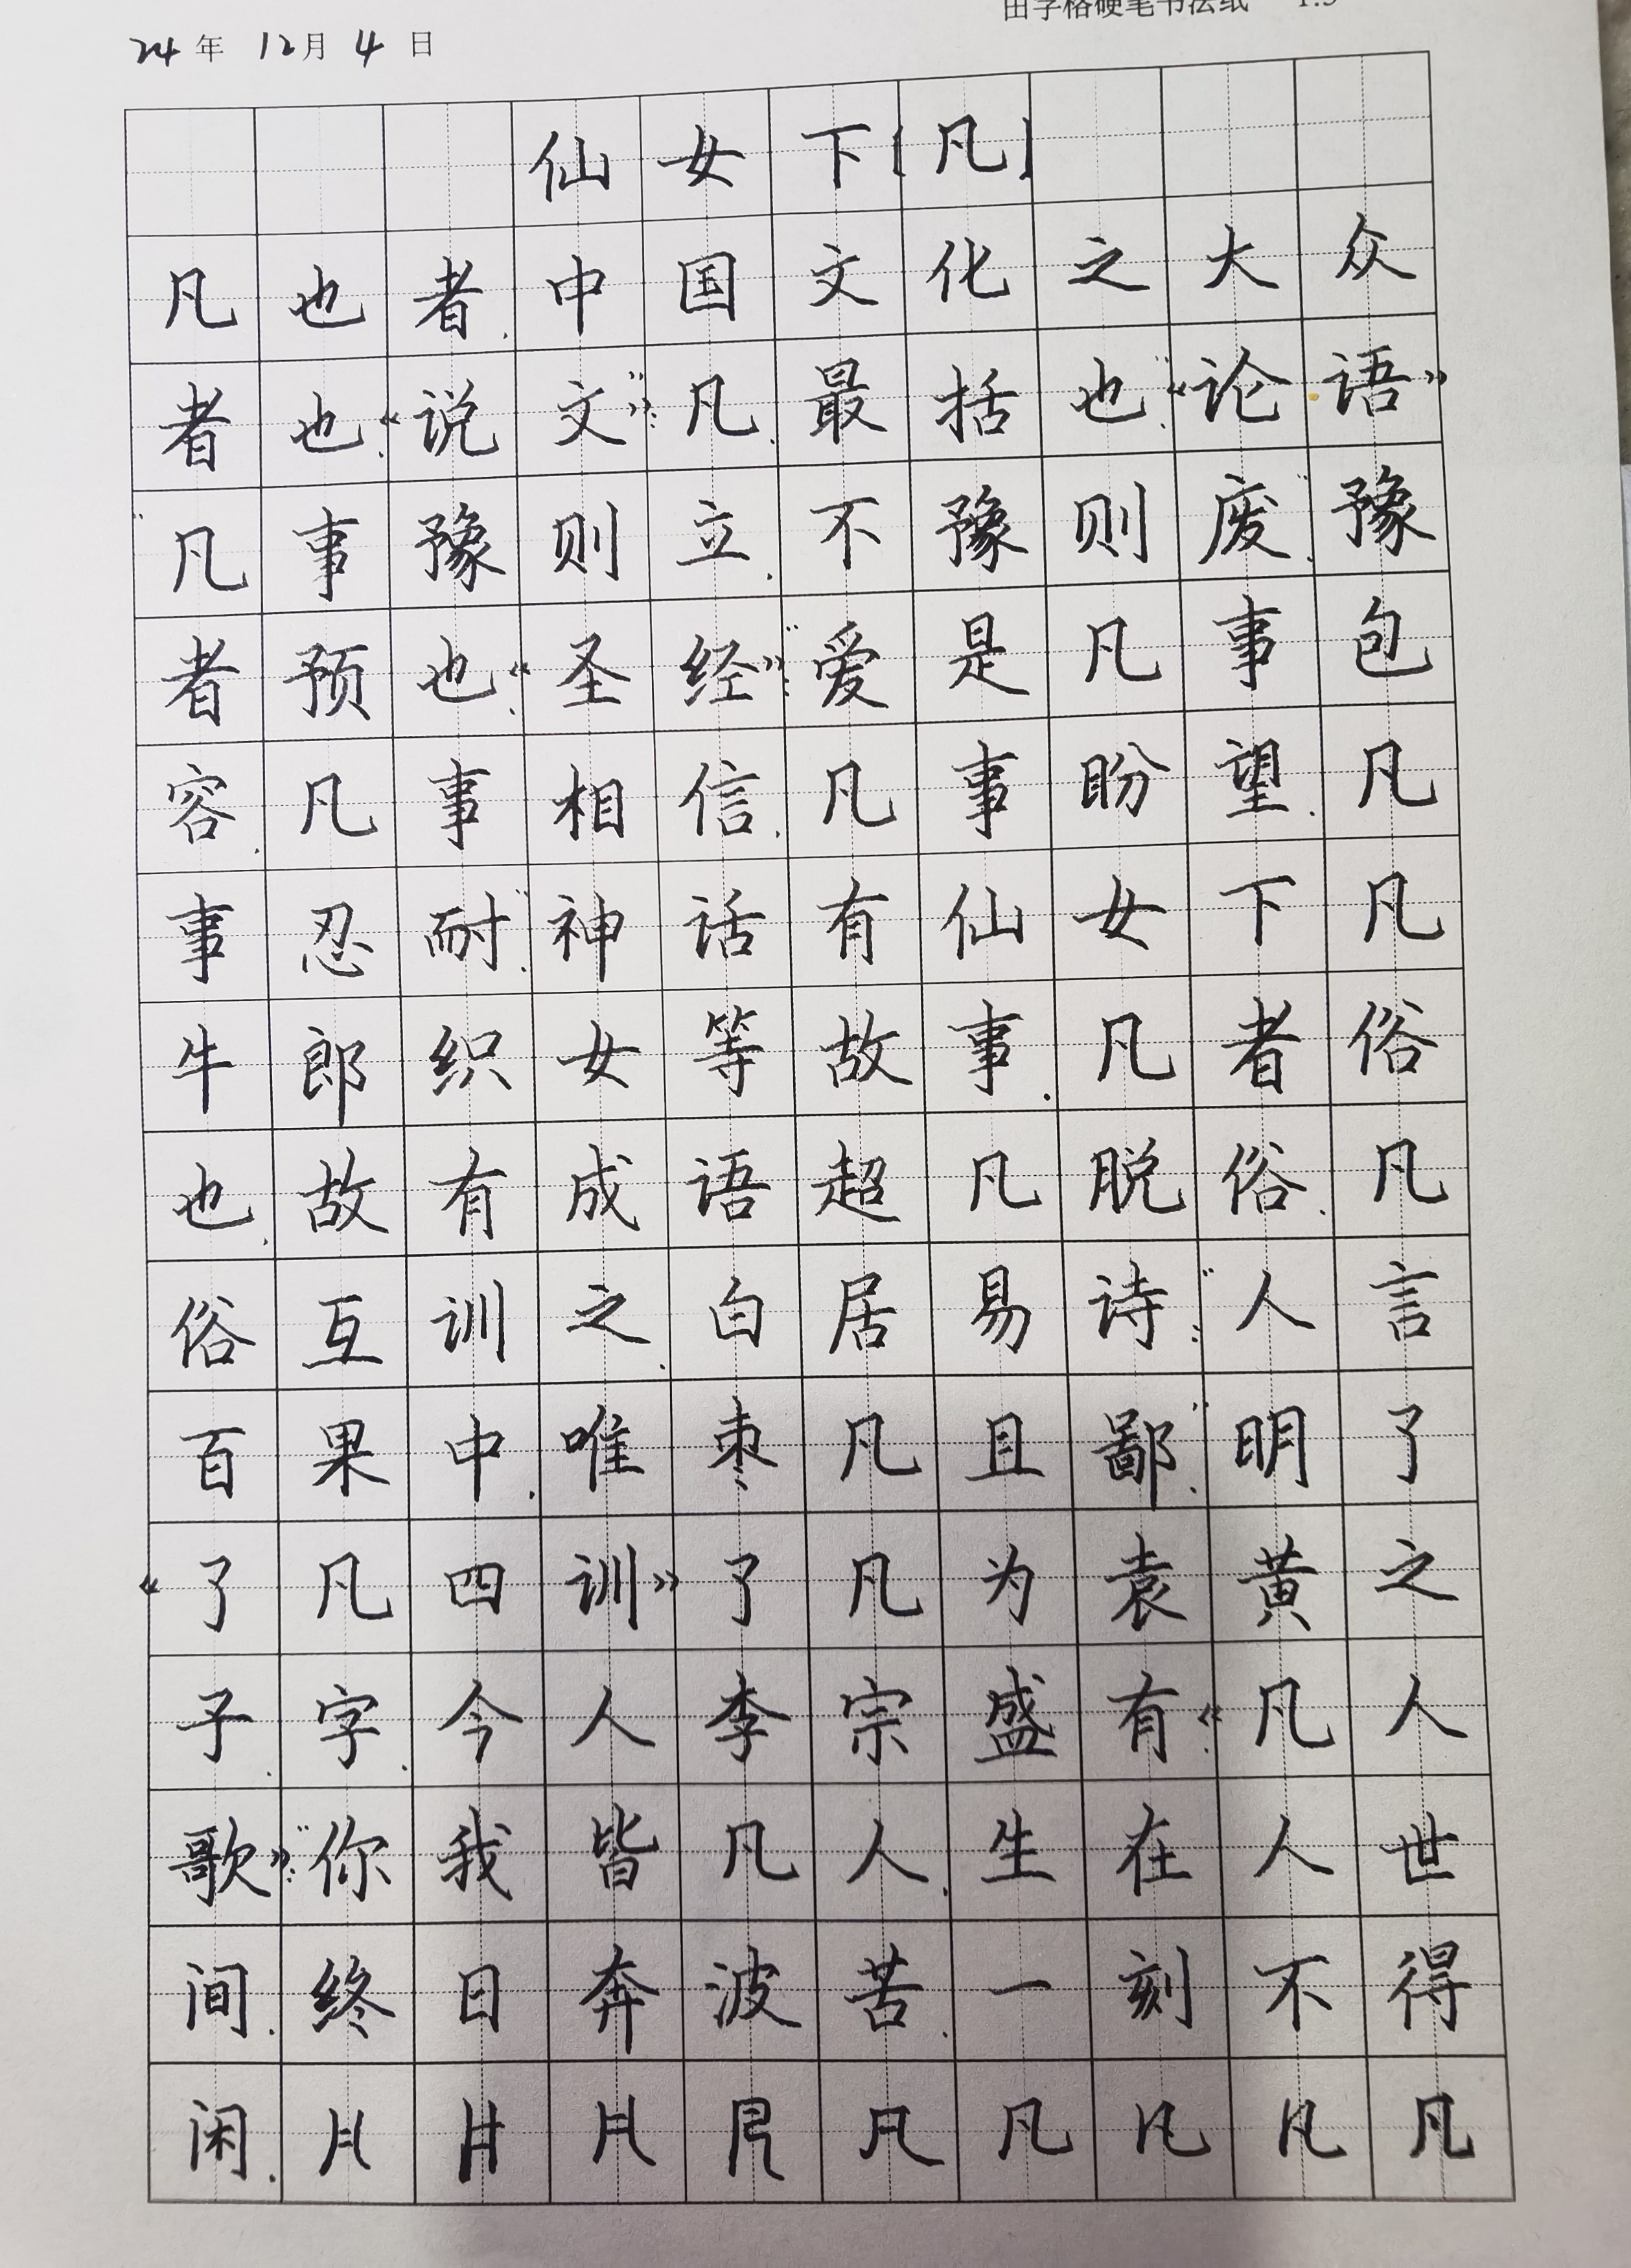 田字格硬笔书法纸 1.5
24年 12月 4日
仙女下【凡】
凡也者.中国文化之大众
者也.《说文》:"凡.最括也"《论语》:
"凡事豫则立.不豫则废".豫
者预也.《圣经》:"爱是凡事包
容.凡事相信.凡事盼望.凡
事忍耐".神话有仙女下凡
牛郎织女等故事.凡者俗
也.故有成语超凡脱俗.凡
俗互训之.白居易诗:"人言
百果中.唯枣凡且鄙".明了
《了凡四训》了凡为袁黄之
子.字.今人李宗盛有:《凡人
歌》:"你我皆凡人.生在人世
间.终日奔波苦.一刻不得
闲.凡凡凡凡凡凡凡凡凡